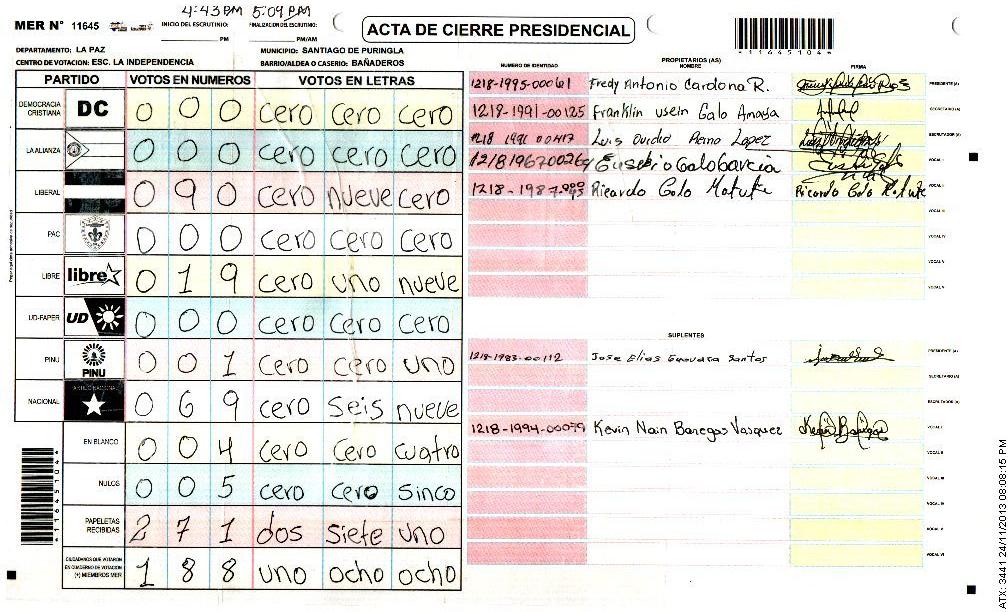 4:43 PM 5:09 PM
MER N° 11645 INICIO DEL ESCRUTINIO: FINALIZACION DEL ESCRUTINIO: ACTA DE CIERRE PRESIDENCIAL
PM PM/AM
*11645104*
DEPARTAMENTO: LA PAZ MUNICIPIO: SANTIAGO DE PURINGLA
CENTRO DE VOTACION: ESC. LA INDEPENDENCIA BARRIO/ALDEA O CASERIO: BAÑADEROS
PARTIDO VOTOS EN NUMEROS VOTOS EN LETRAS
DEMOCRACIA CRISTIANA DC 0 0 0 cero cero cero
LA ALIANZA 0 0 0 cero cero cero
LIBERAL 0 9 0 cero nueve cero
PAC 0 0 0 cero cero cero
LIBRE libre 0 1 9 cero uno nueve
UD-FAPER UD 0 0 0 cero cero cero
PINU PINU 0 0 1 cero cero uno
NACIONAL 0 6 9 cero seis nueve
EN BLANCO 0 0 4 cero cero cuatro
NULOS 0 0 5 cero cero sinco
PAPELETAS RECIBIDAS 2 7 1 dos siete uno
CIUDADANOS QUE VOTARON EN CUADERNO DE VOTACION (+) MIEMBROS MER 1 8 8 uno ocho ocho
PROPIETARIOS (AS)
NUMERO DE IDENTIDAD NOMBRE FIRMA
1218-1995-00061 Fredy Antonio Cardona R. PRESIDENTE (A)
1218-1991-00125 Franklin usein Galo Amaya SECRETARIO (A)
1218 1991 00417 Luis Ovidio Lopez ESCRUTADOR (A)
Eusebio Galo Garcia VOCAL I
1218-1987- Ricardo Galo Matute Ricardo Galo Matute VOCAL II
VOCAL III
VOCAL IV
VOCAL V
SUPLENTES
1218-1983-00112 Jose Elias Guevara Santos PRESIDENTE (A)
SECRETARIO (A)
ESCRUTADOR (A)
1218-1994-00079 Kevin Nain Banegas Vasquez VOCAL I
VOCAL II
VOCAL III
VOCAL IV
VOCAL V
VOCAL VI
ATX: 3441 24/11/2013 08:08:15 PM